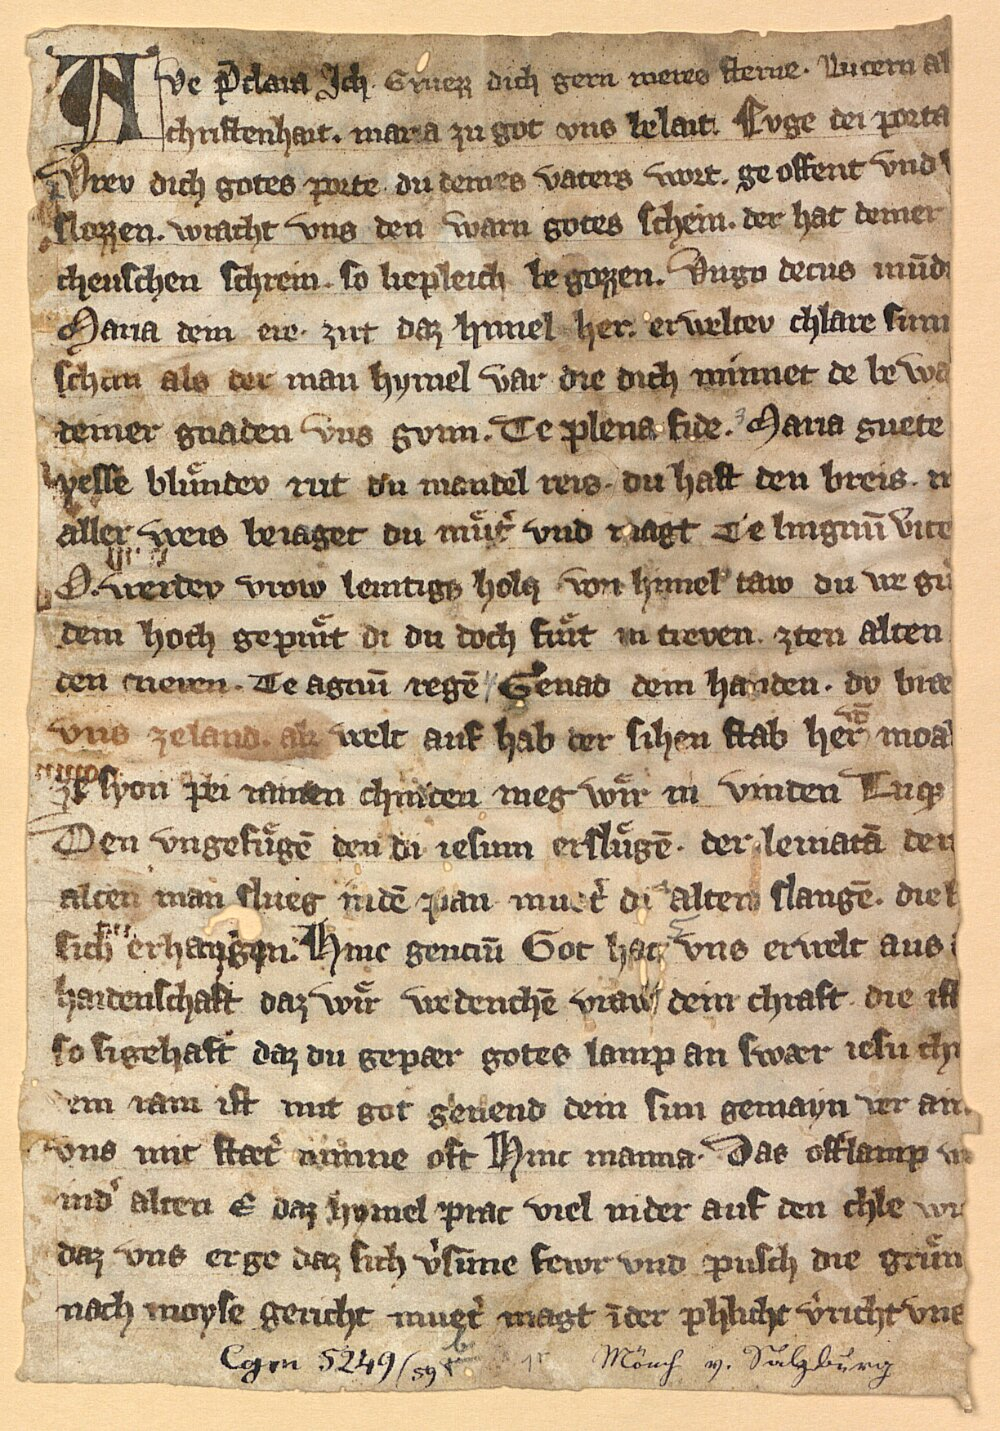 AVe p̄clara Ich Gruezz dich gern meres sterne. Lucern al
christenhait. maria zu got vns belait. Euge dei porta
Vrev dich gotes porte du deines vaters wort. ge offent vnd
slozzen. wracht vns den warn gotes schein. der hat deiner
cheuschen schrein. so liepleich be gozzen. Virgo decus mūdi
Maria dein ere zirt daz himel her. erweltev chlare sunn
schon als der man hymel var die dich minnet de be wa
deiner gnaden vns gunn. Te plena fide. Maria guete
yesse blu̇ndev rut du mandel reis. du hast den breis. in
aller weis beiaget du mu̇t' vnd magt Te lingnū vite
O. werdev vrow lemtigs holz von himel taw du we gu
dem hoch gepiu̇t di du doch siu̇t in trewen. zten alten
den newen. Te agnū regē Genad dem handen. dv bræ
vns zeland. als welt auf hab der sihen stab her moa
ze syon pei rainen chinden meg wir in vinden Tuqʒ
Den vngefu̇gē den du iesum erslu̇gē. der leuiatā der
alten man slueg indē pan muet' di alten slangē. die
sich erhangen. Hinc genciū Got hat vns erwelt aus
haidenschaft daz wir bedenchē vraw dein chraft die ist
so sigehaft daz du gepær gotes lamp an swær iesu chr
dein nam ist mit got geuend dein sun gemayn ver ain
vns mit stæt' minne oft Hinc manna. Das offlamp
ind' alten E daz hymel prac viel nider auf den chle
daz vns erge daz sich v'sune fewr vnd pusch die gru̇n
nach moyse gericht muet' magt īder phlicht v'richt vns
Cgm 5249/59 b 1r Mönch v. Salzburg